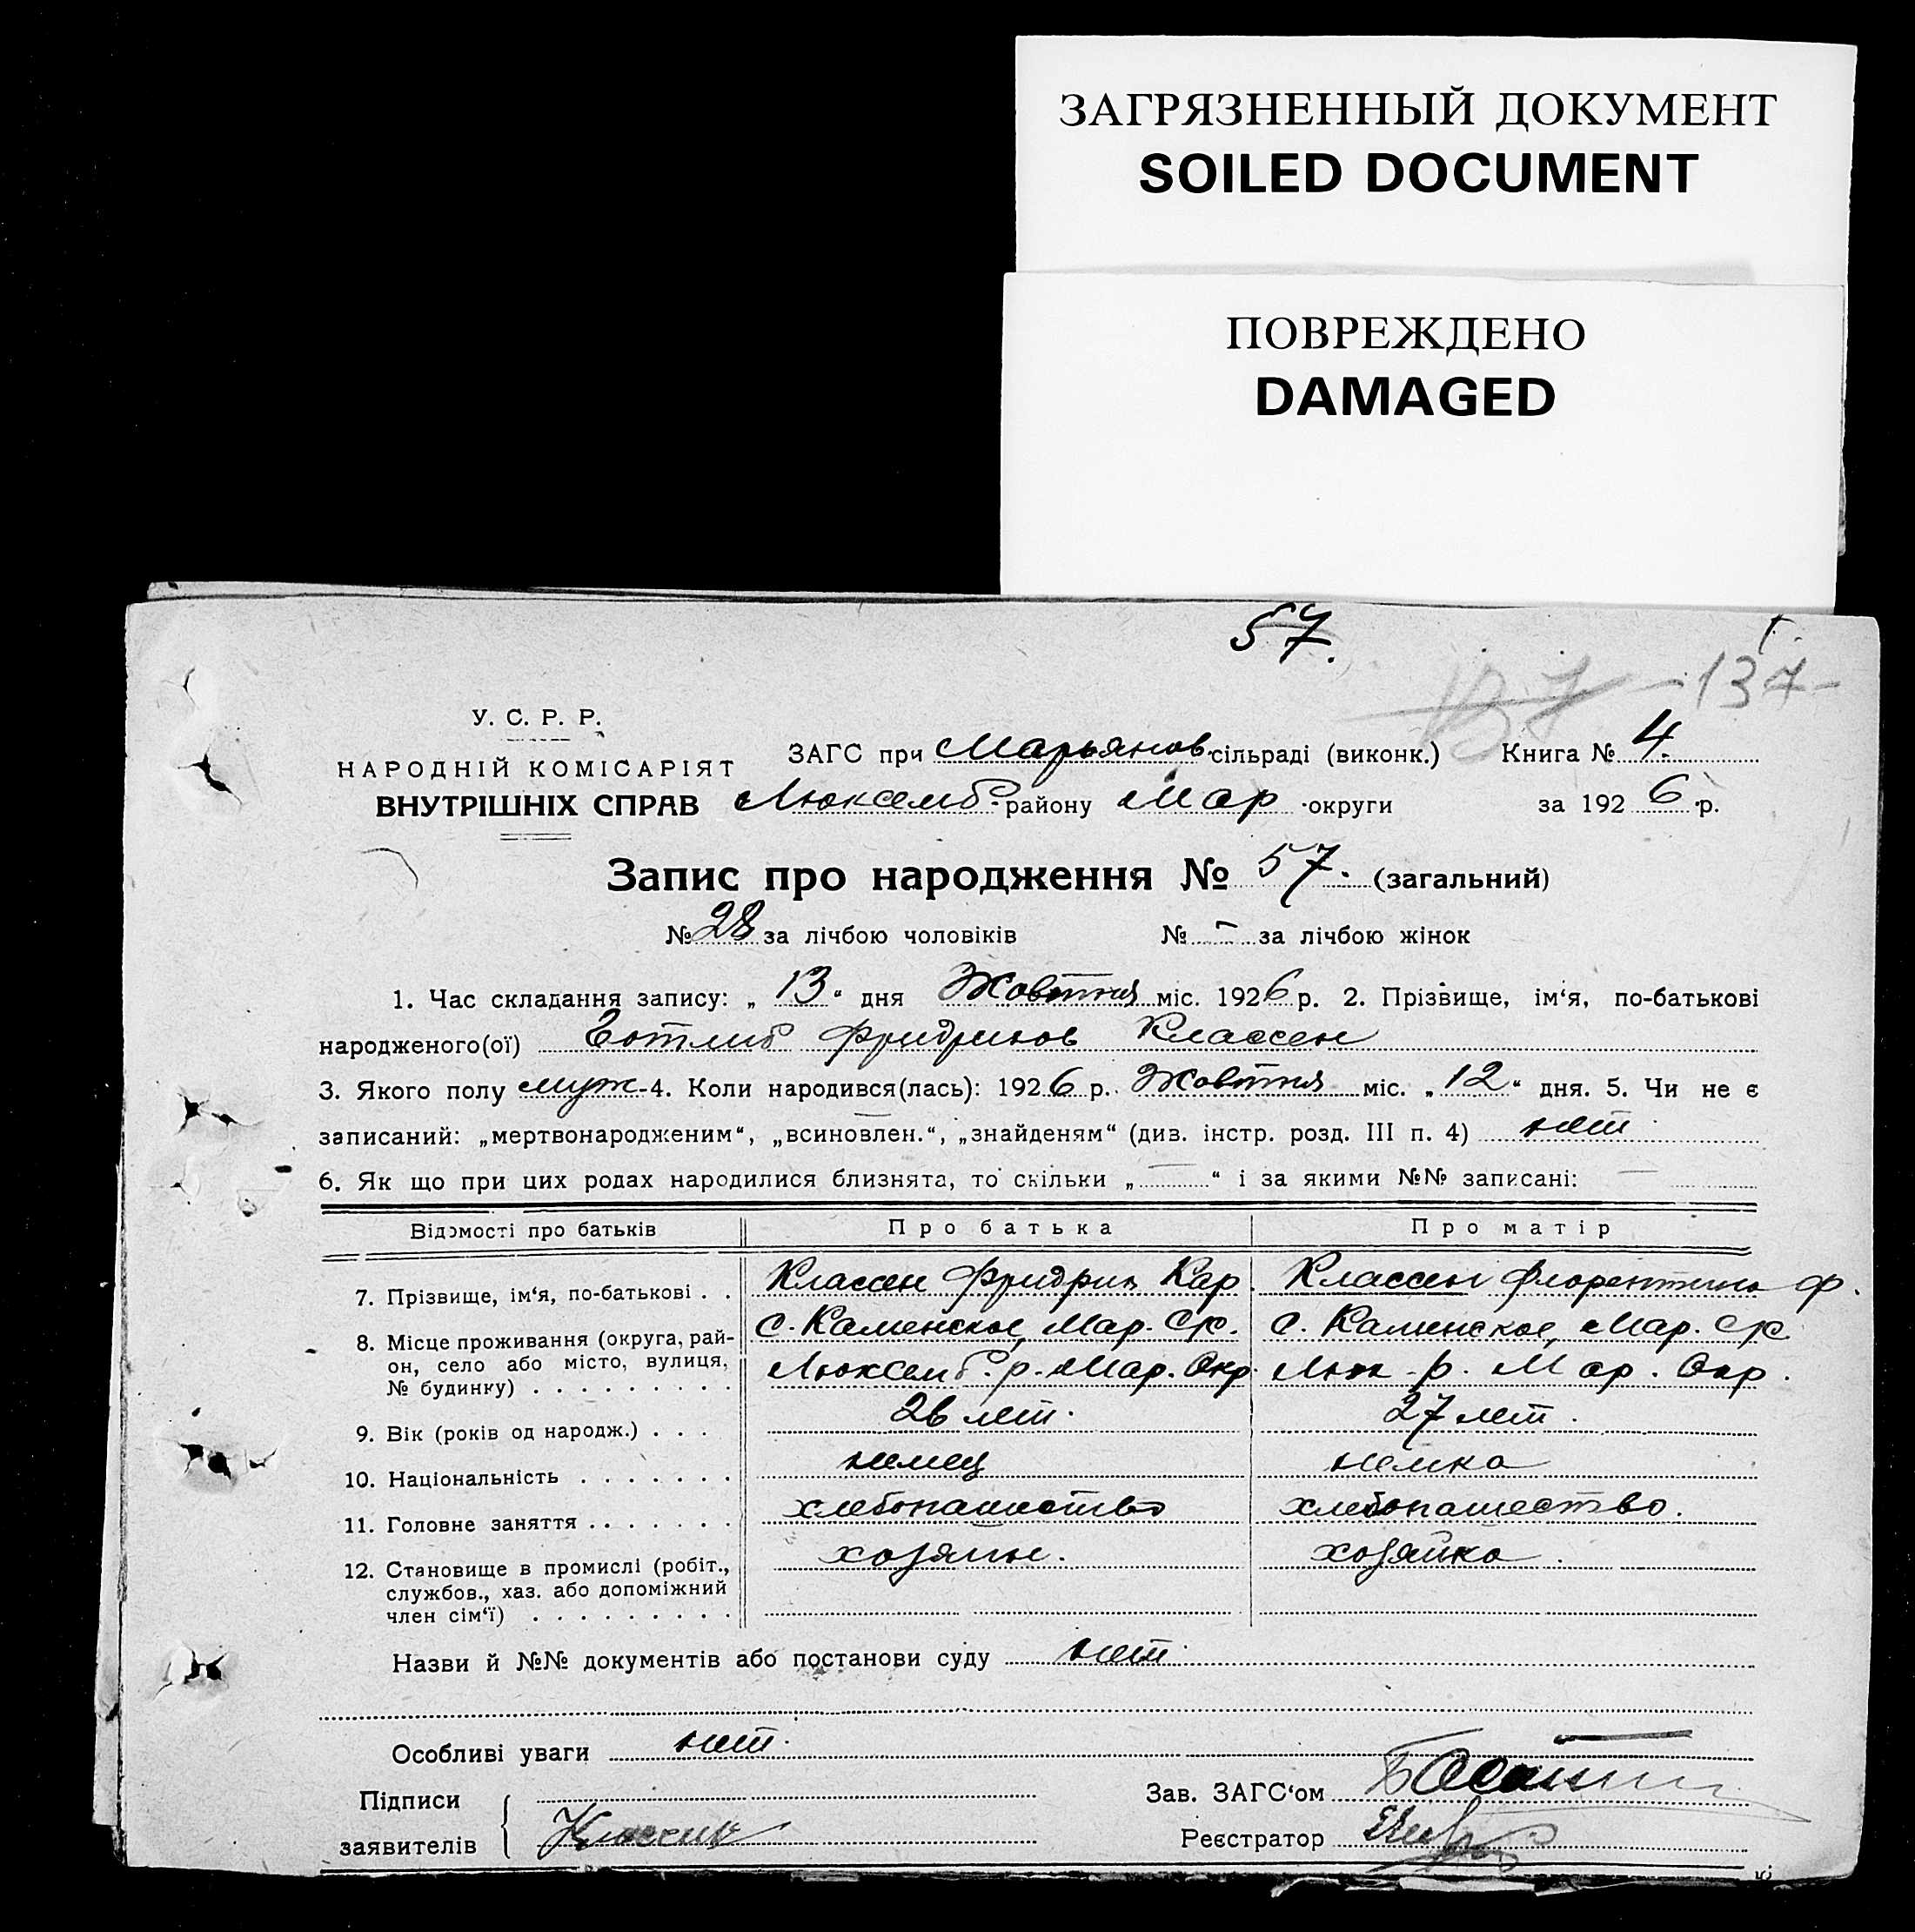 ЗАГРЯЗНЕННЫЙ ДОКУМЕНТ
SOILED DOCUMENT
ПОВРЕЖДЕНО
DAMAGED
57.
137 -137-
У. С. Р. Р.
НАРОДНІЙ КОМІСАРІЯТ
ВНУТРІШНІХ СПРАВ
ЗАГС при Марьянов сільраді (виконк.) Книга № 4.
Люксемб. району Мар округи за 1926 р.
Запис про народження № 57. (загальний)
№ 28 за лічбою чоловіків № - за лічбою жінок
1. Час складання запису: „ 13 “ дня Жовтня міс. 1926 р. 2. Прізвище, ім‘я, по-батькові
народженого(ої) Готлиб Фридрихов Классен
3. Якого полу муж- 4. Коли народився(лась): 1926 р. Жовтня міс. „ 12 “ дня. 5. Чи не є
записаний: „мертвонародженим“, „всиновлен.“, „знайденям“ (див. інстр. розд. III п. 4) нет
6. Як що при цих родах народилися близнята, то скільки „ — “ і за якими №№ записані: —
Відомості про батьків Про батька Про матір
7. Прізвище, ім‘я, по-батькові . . Классен Фридрих Кар. Классен Флорентина Ф.
8. Місце проживання (округа, рай- с. Каменское, Мар. С/с. с. Каменское, Мар. С/с
он, село або місто, вулиця, Люксемб. р. Мар. Окр. Люк. р. Мар. Окр.
№ будинку) . . . . . . . . .
9. Вік (років од народж.) . . . 26 лет. 27 лет.
10. Національність . . . . . . . немец немка
11. Головне заняття . . . . . . . хлебопашество хлебопашество.
12. Становище в промислі (робіт., хозяин. хозяйка.
службов., хаз. або допоміжний
член сім‘ї) . . . . . . . . .
Назви й №№ документів або постанови суду нет.
Особливі уваги нет.
Підписи
заявителів Классен
Зав. ЗАГС‘ом
Реєстратор